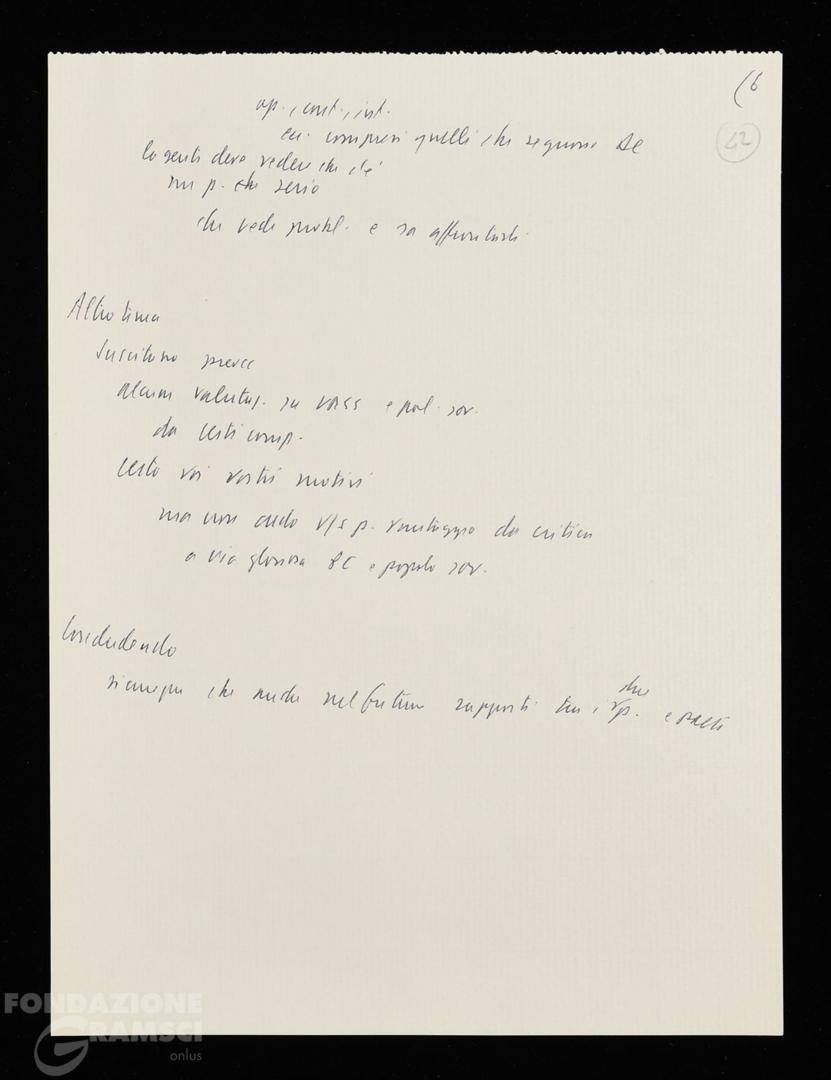 (6
42
op., cont., int.
ecc. compresi quelli che seguono DC
la gente deve vedere che c'è
un p. che serio
che vede probl. e sa affrontarli
Altro tema
Suscitano preocc
alcuni valutaz. su URSS e pol. sov.
da certi comp.
certo voi vostri motivi
ma non credo v/s p. vantaggio da critica
a via gloriosa PC e popolo sov.
Concludendo
che anche nel futuro rapporti tra i due p.
FONDAZIONE
GRAMSCI
onlus